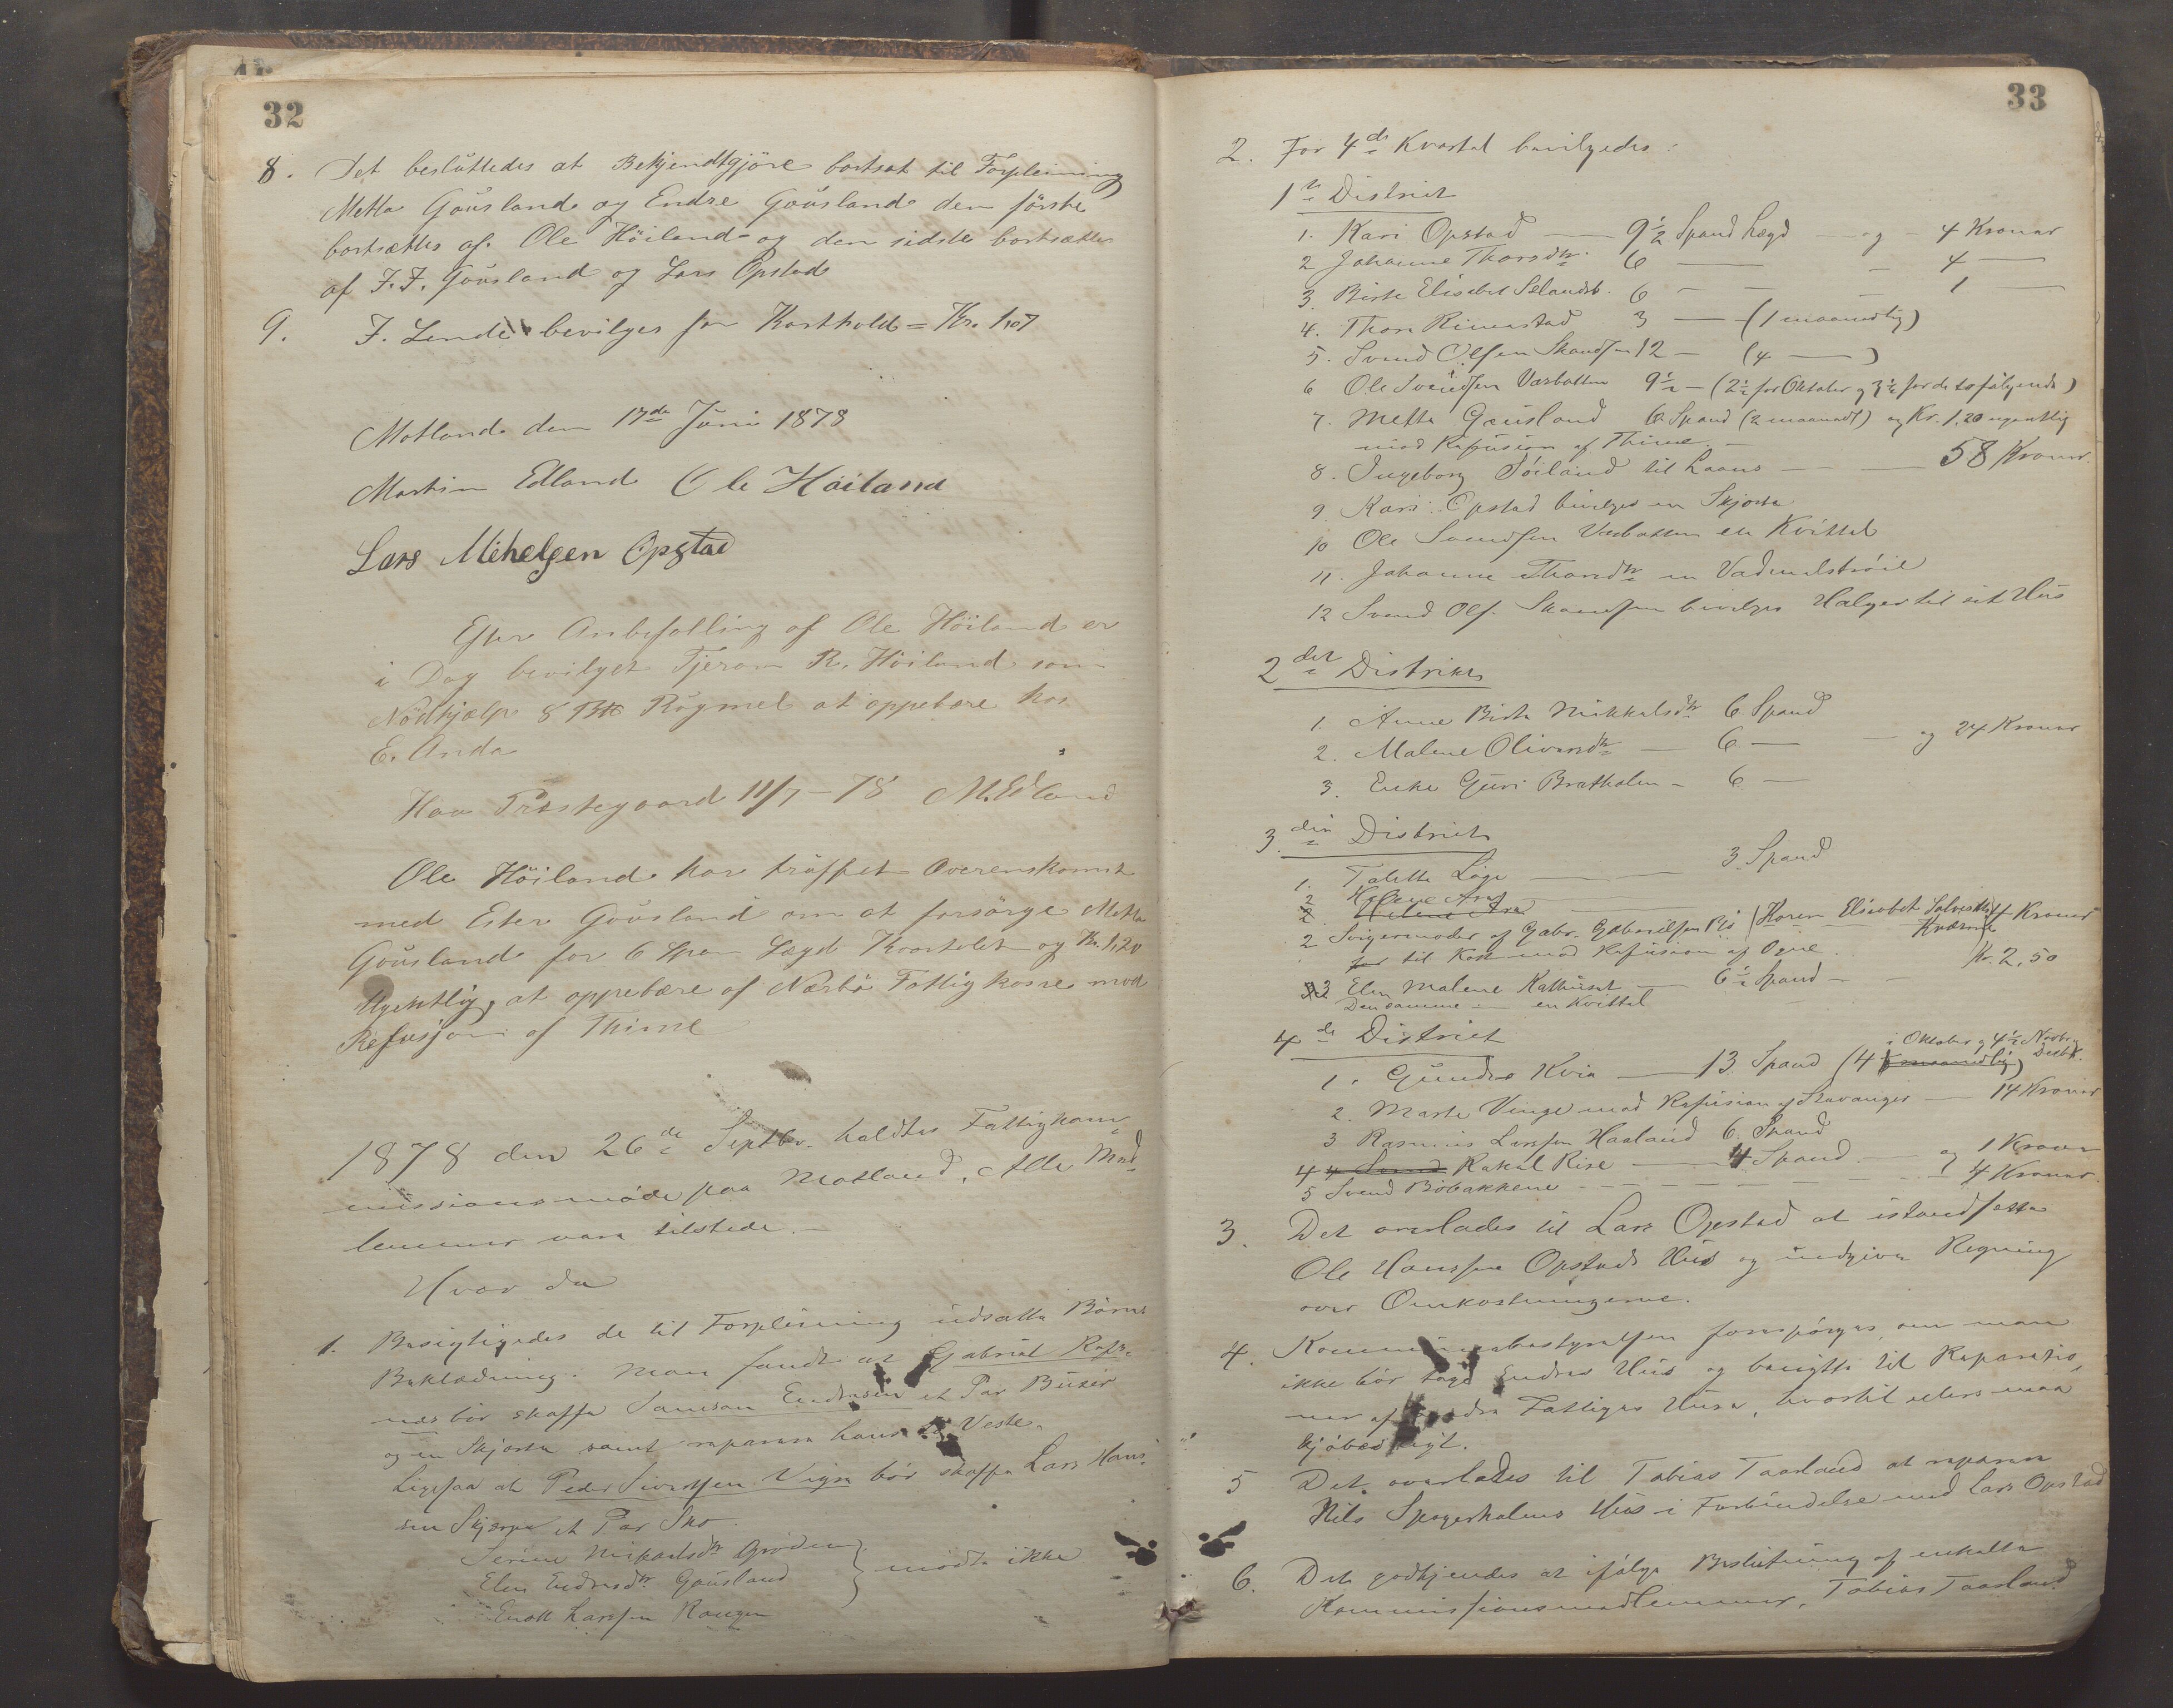 32
8. Det besluttedes at Bekjendtgjöre bortsat til Forpleining
Metta Gousland og Endre Gousland den förste
bortsættes af Ole Höiland og den sidste bortsættes
af J. J. Gousland og Lars Opstad
9. J. Lende bevilges for Kosthold = Kr. 1,07
Motland den 17de Juni 1878
Martin Edland Ole Höiland
Lars Mihelsen Opstad
Efter Anbefalling af Ole Höiland er
i Dag bevilget Tjeran R. Höiland som
Nödhjælp 8 Rugmel at oppebære hos
E. Anda
Haa Præstegaard 11/7 - 78 M. Edland
Ole Höiland har truffet Overenskomst
med Ester Gousland om at forsörge Metta
Gousland for 6 Span Lægd Kvartalet og Kr. 1,20
Ugentlig, at oppebære af Nærbö Fattigkasse mod
Refusjon af Thime
1878 den 26de Septbr. holdtes Fattigkom-
missionsmöde paa Motland. Alle Med-
lemmer vare tilstede.
Hvor da
1. Besigtigedes de til Forpleining udsatte Börns
Beklædning. Man fandt at Gabriel
bör skaffe Samson Endresen et Par Buxer
og en Skjorte samt reparere hans Veste.
Ligesaa at Peder Sivertsen Vigre bör skaffe Lars Hans-
sen Skjærpe et Par Sko.
Serine Gröden
Elen Endresdtr Gousland
Enok Larssen
mödte ikke
33
2. For 4de Kvartal bevilgedes:
1te District
1. Kari Opstad — 9½ Spand Lægd — og — 4 Kroner
2 Johanne Thorsdtr. 6 — — 4 —
3. Birte Elisabet 6 — — — 1 —
4. Thore Rimestad 3 — (1 maanedlig)
5. Svend Olsen 12 — (4 — )
6 Ole Svendsen Varbakken 9½ — (2½ for Oktober og 3½ for de to fölgende)
7. Metta Gousland 6 Spand (2 maanedl) og Kr. 1,20 ugentlig
mod Refusion af Thime. —
8. Ingeborg til Laans — — 58 Kroner.
9. Kari Opstad bevilges en Skjorte
10 Ole Svendsen Varbakken en Kvittel
11. Johanne Thorsdtr en Vadmelströie
12 Svend Ols. bevilges Halger til sit Hus
2det Distrikt
1. Anne Birte Mikkelsdtr 6 Spand
2. Malene Oliversdtr — 6 — — og 24 Kroner
3. Enke Guri Bratholen — 6 —
3die District
1. Tolette Löge — — 3 Spand
2 Helene Arne
2 Svigermoder af Gabr. Gabrielsen Karen Elisabet 4 Kroner
til Kost mod Refusion af Ogne.
3 Elen Malene 6½ Spand — — Kr. 2,50
Densamme — en Kvittel
4de District
i Oktober og 4½ Novbr og Decbr.
1. Gunder Kvia — 13 Spand (4 maanedlig)
2. Marte Vinge mod Refusion af Stavanger — 14 Kroner
3 Rasmus Larssen Haaland 6 Spand
4 Rakel Rise — 4 Spand — og 1 Krone
5 Svend Böbakkene — — — — 4 Kroner.
3. Det overlades til Lars Opstad at istandsætte
Ole Hanssen Opstads Hus og indgive Regning
over Omkostningerne.
4. Kommunebestyrelsen forespörges, om man
ikke bör tage Endres Hus og benytte til Reparatio-
ner af andre Fattiges Huse, hvortil ellers maa
kjöbes nyt.
5 Det overlades til Tobias Taarland at reparere
Nils Hus i Forbindelse med Lars Opstad
6. Det godkjendes at ifölge Beslutning af enkelte
Kommissionsmedlemmer, Tobias Taarland